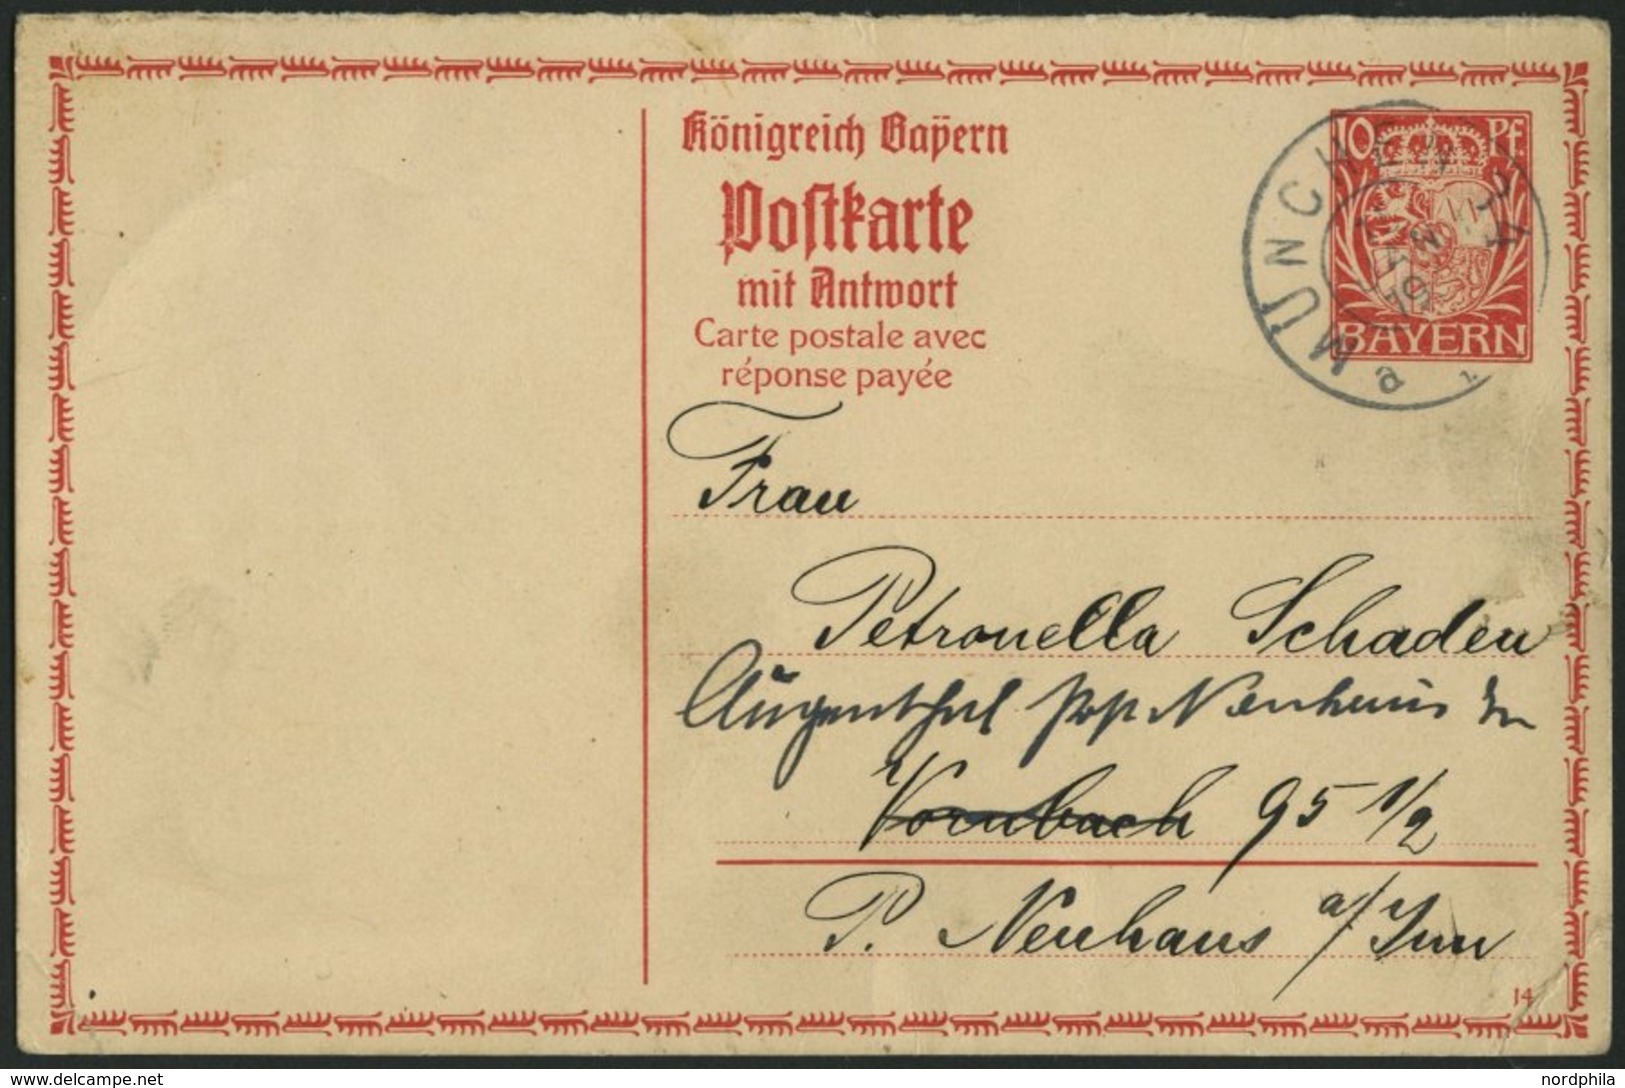 Königreich Bayern
Postkarte
mit Antwort
Carte postale avec
réponse payée
10 Pf
BAYERN
MÜNCHEN
a
Frau
Petronella Schaden
Augenthal Post Neuhaus
Vornbach 95 1/2
P. Neuhaus a/Inn
14
delcampe.net
nordphila